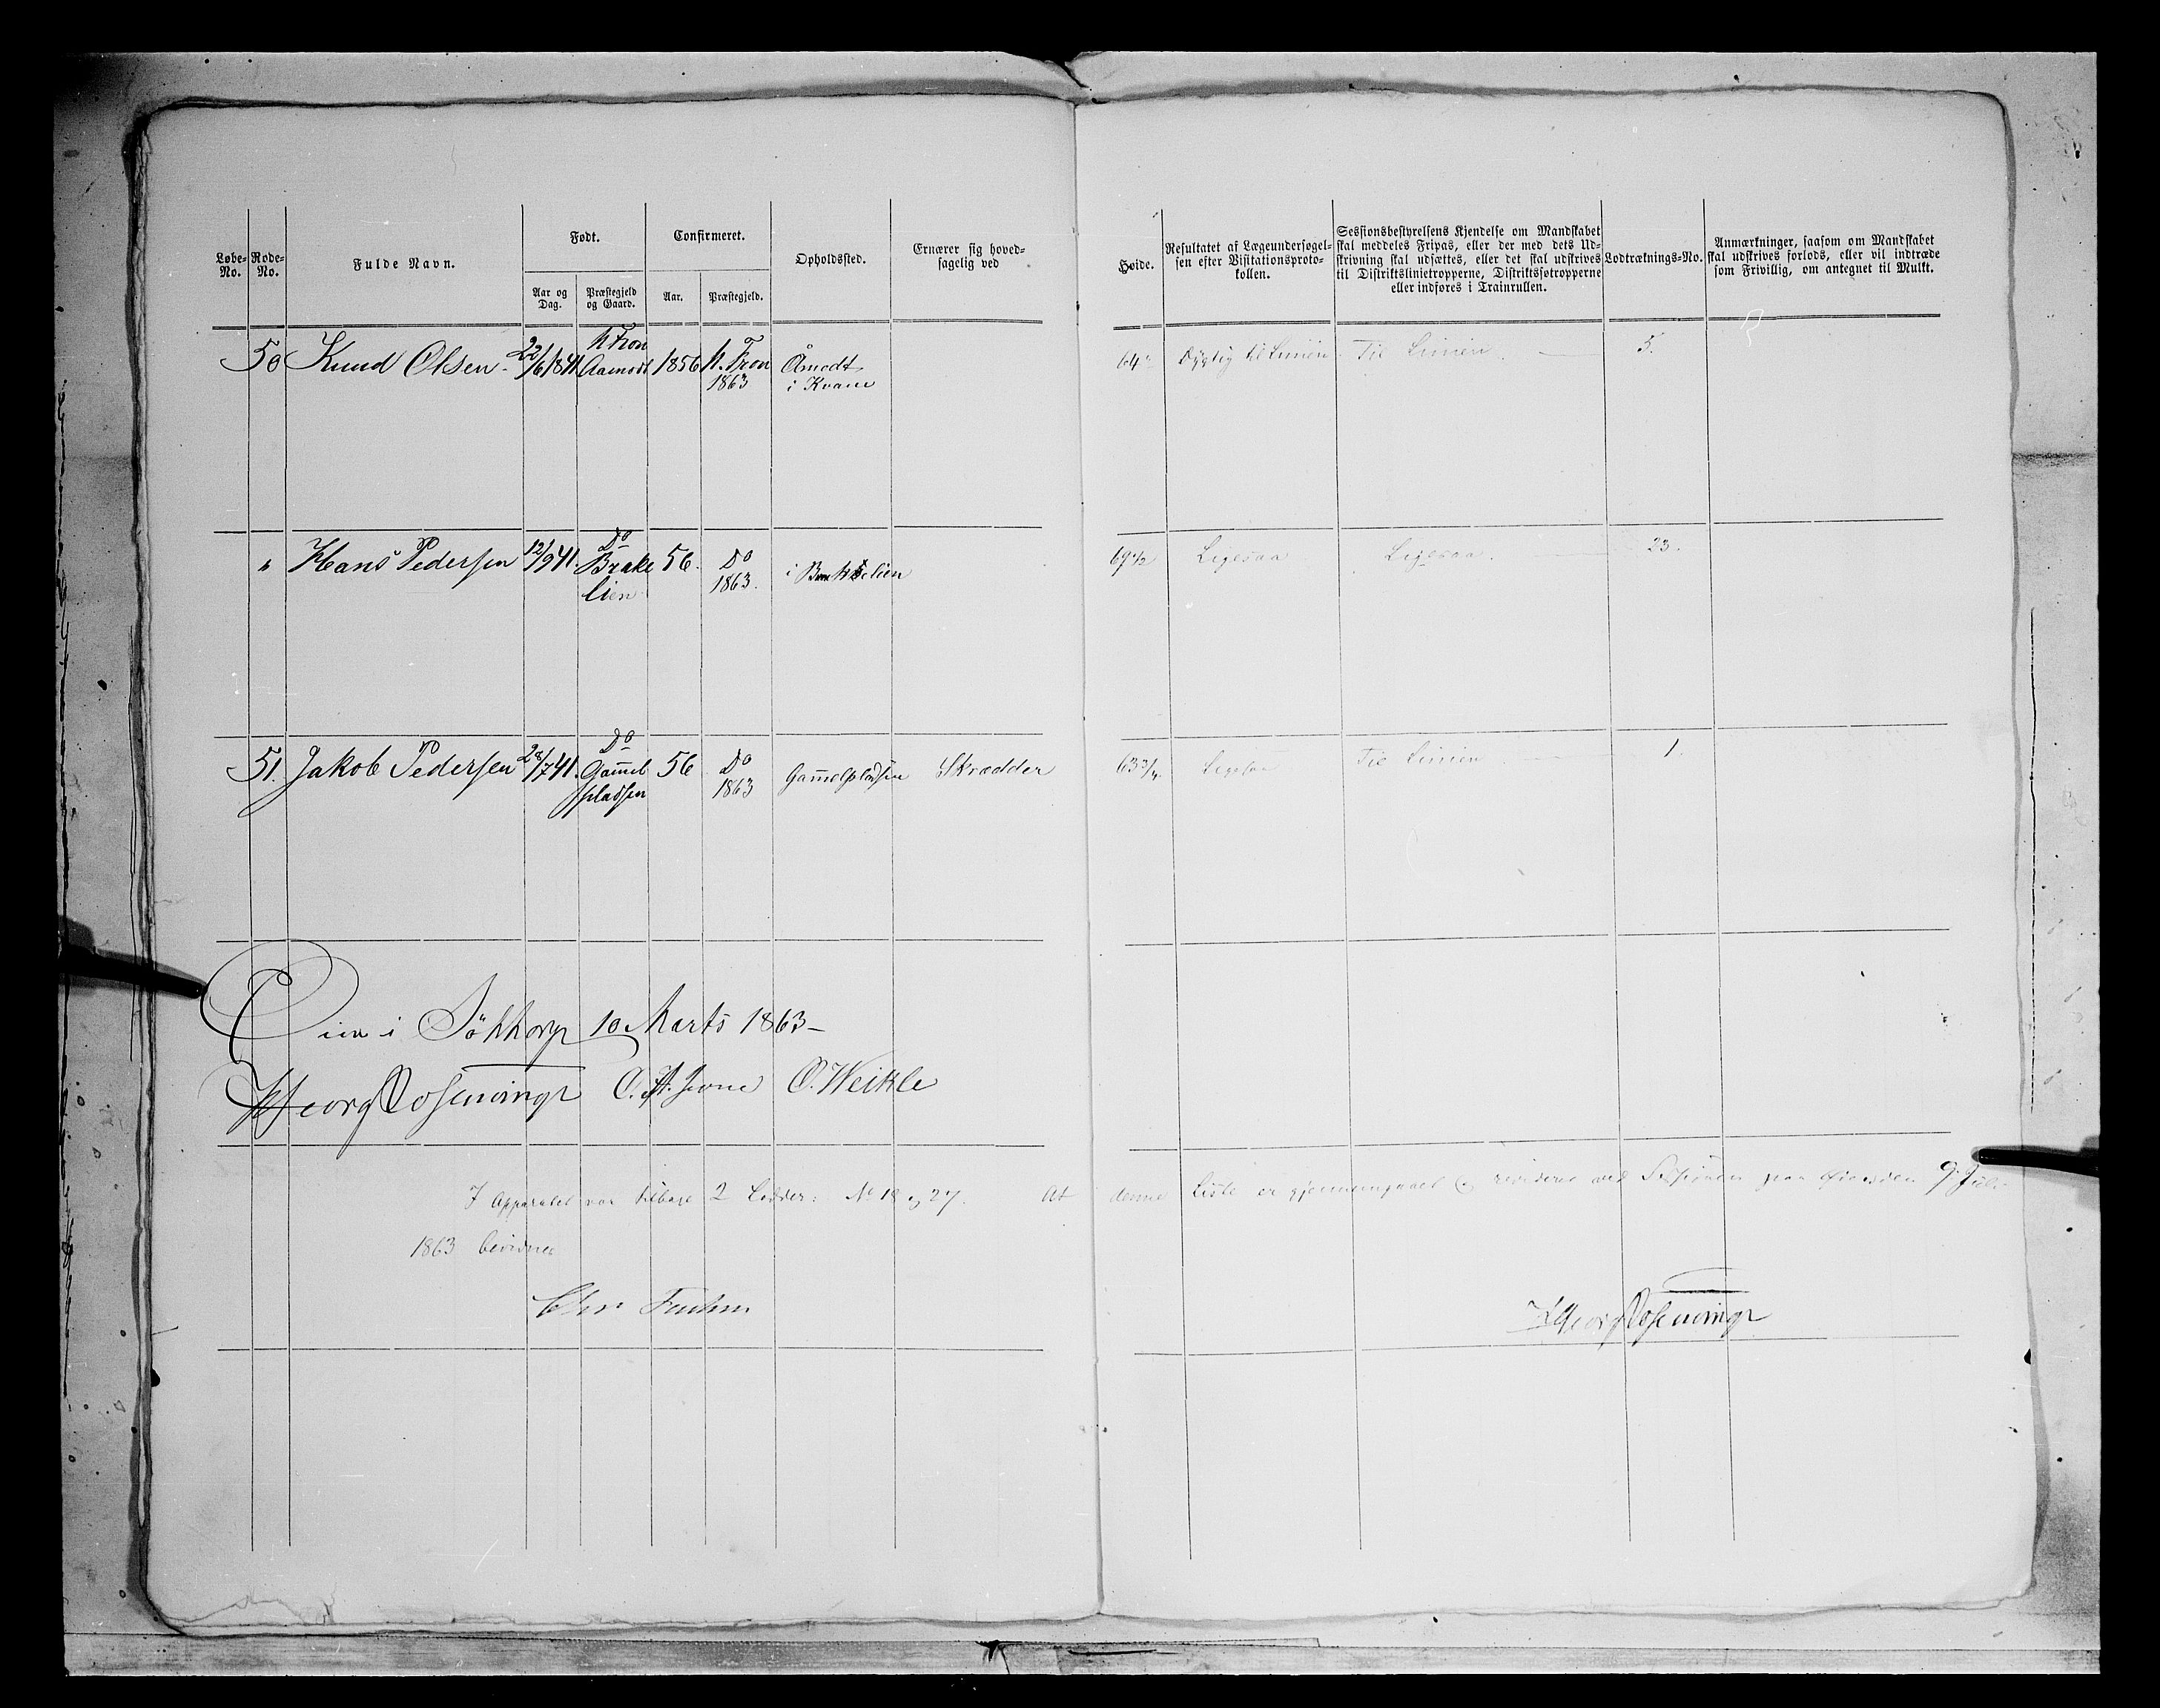 Løbe-No.
Rode-No.
Fulde Navn.
Født.
Aar og Dag.
Præstegjeld og Gaard.
Confirmeret.
Aar.
Præstegjeld.
Opholdssted.
Ernærer sig hoved-
sagelig ved
Høide.
Resultatet af Lægeundersøgel-
sen efter Visitationsproto-
kollen.
Sessionsbestyrelsens Kjendelse om Mandskabet
skal meddeles Fripas, eller der med dets Ud-
skrivning skal udsættes, eller det skal udskrives
til Distriktslinietropperne, Distriktssøtropperne
eller indføres i Trainrullen.
Lodtræknings-No.
Anmærkninger, saasom om Mandskabet
skal udskrives forlods, eller vil indtræde
som Frivillig, om antegnet til Mulkt.
N Fron
50 Knud Olsen 22/6 1841 Aamodt 1856 N. Fron Åmodt 64" Dygtig til Linien Til Linien 5.
1863 i Kvam
Do
" Hans Pedersen 12/9 41. Brake 56. Do i Brakelien 69 1/2 Ligesaa Ligesaa 23.
lien 1863.
Do
51. Jakob Pedersen 28/7 41. Gam̅el 56 Do Gam̅elpladsen Skrædder 63 3/4 Ligesaa Til Linien 1.
pladsen 1863
i Søkkorp 10 Marts 1863
Georg Rosenvinge O. Weikle
I Apparatet var tilbage 2 Lodder: No 18 og 27. At denne Liste er gjennemgaaet og revideret ved Sessionen paa 9. Juli
1863 bevidnes
Chr
Georg Rosenvinge